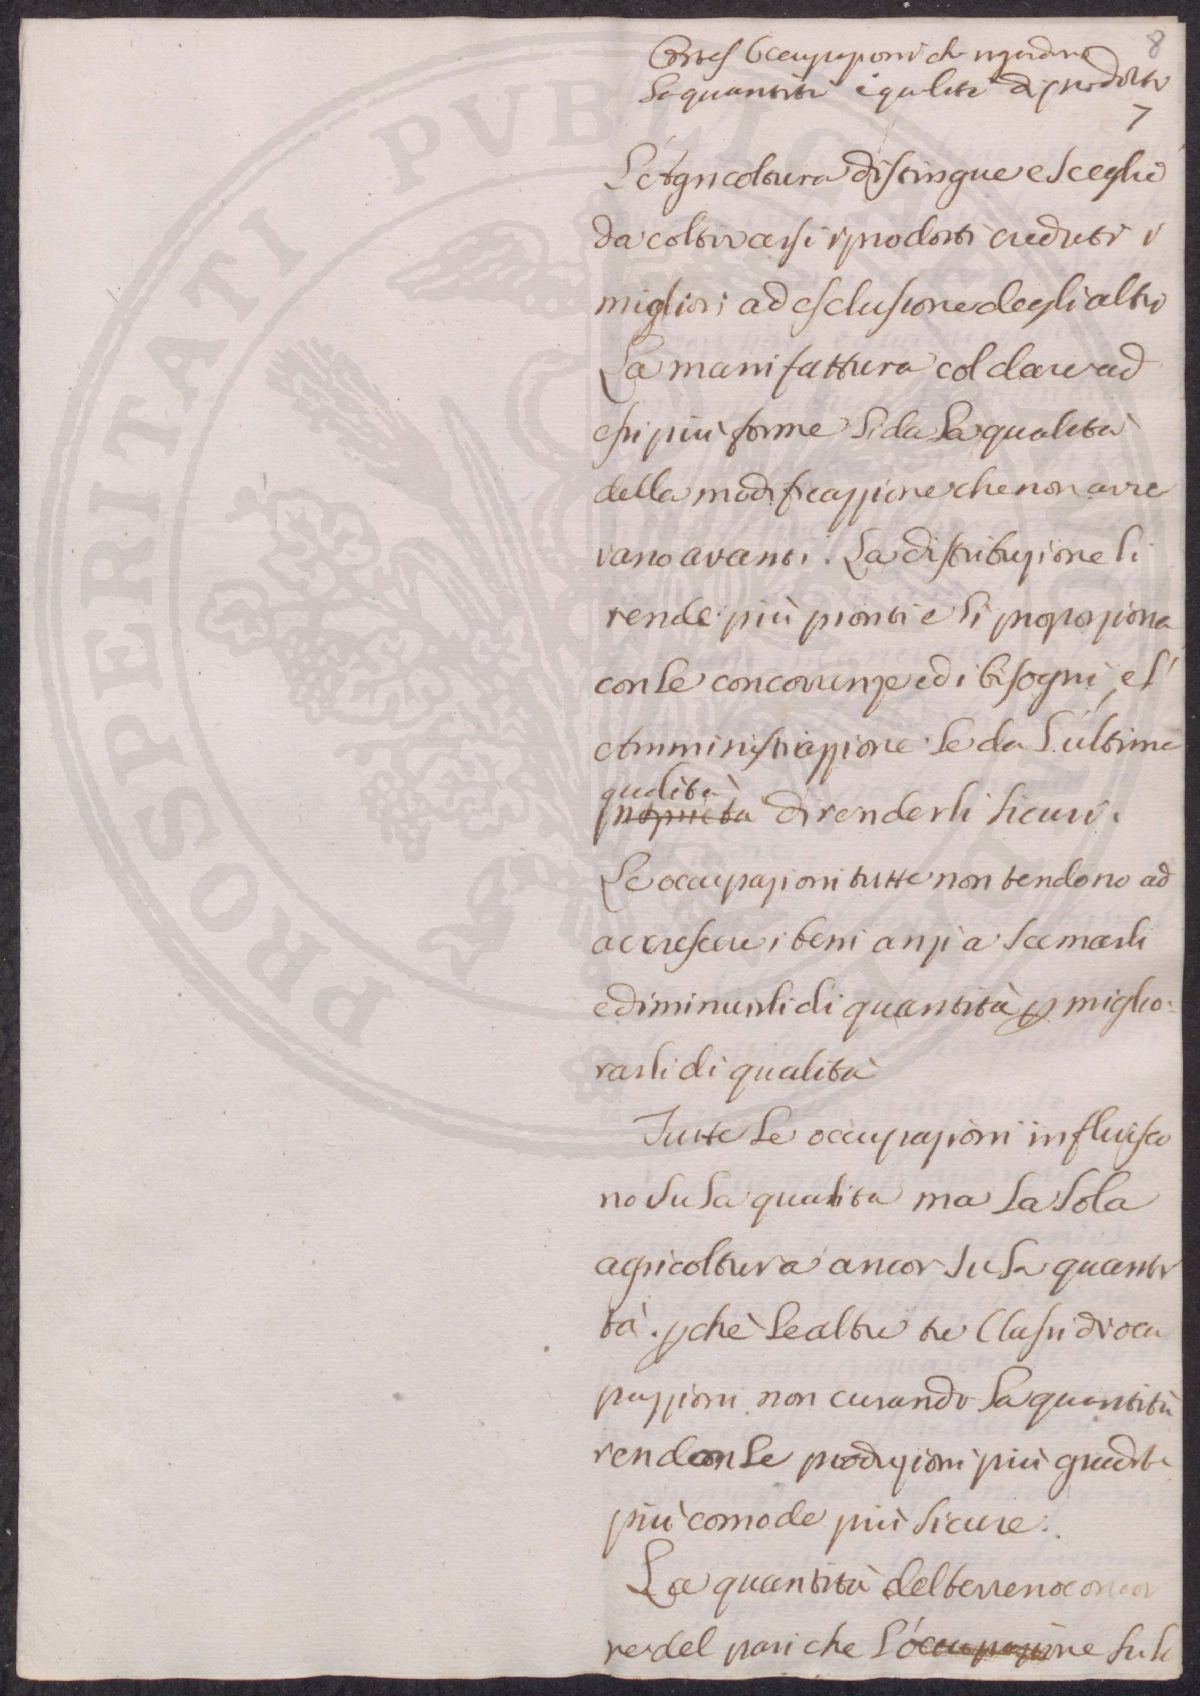 8
Occupazioni che riguardano
la quantità e qualità di prodotti
7
L'Agricoltura distingue e sceglie
da coltivarsi i prodotti creduti i
migliori ad esclusione degli altri
La manifattura col dare ad
essi più forme li da la qualità
della modificazzione che non ave
vano avanti. La distribuzione li
rende più pronti e li proporziona
con le concorrenze ed i bisogni, e l'
Amministrazzione le da l'ultima
qualità
proprietà di renderli sicuri.
Le occupazioni tutte non tendono ad
accrescere i beni anzi a scemarli
e diminuirli di quantità p miglio=
rarli di qualità
Tutte le occupazioni influisco
no su la qualità ma la sola
agricoltura ancor su la quanti
tà. pchè le altre tre Classi di ocu
pazzioni non curando la quantità
rendon le produzioni più gradite
più comode più sicure.
La quantità del terreno concor
re del pari che l'occupazione su la
PROSPERITATI PVBLICAE